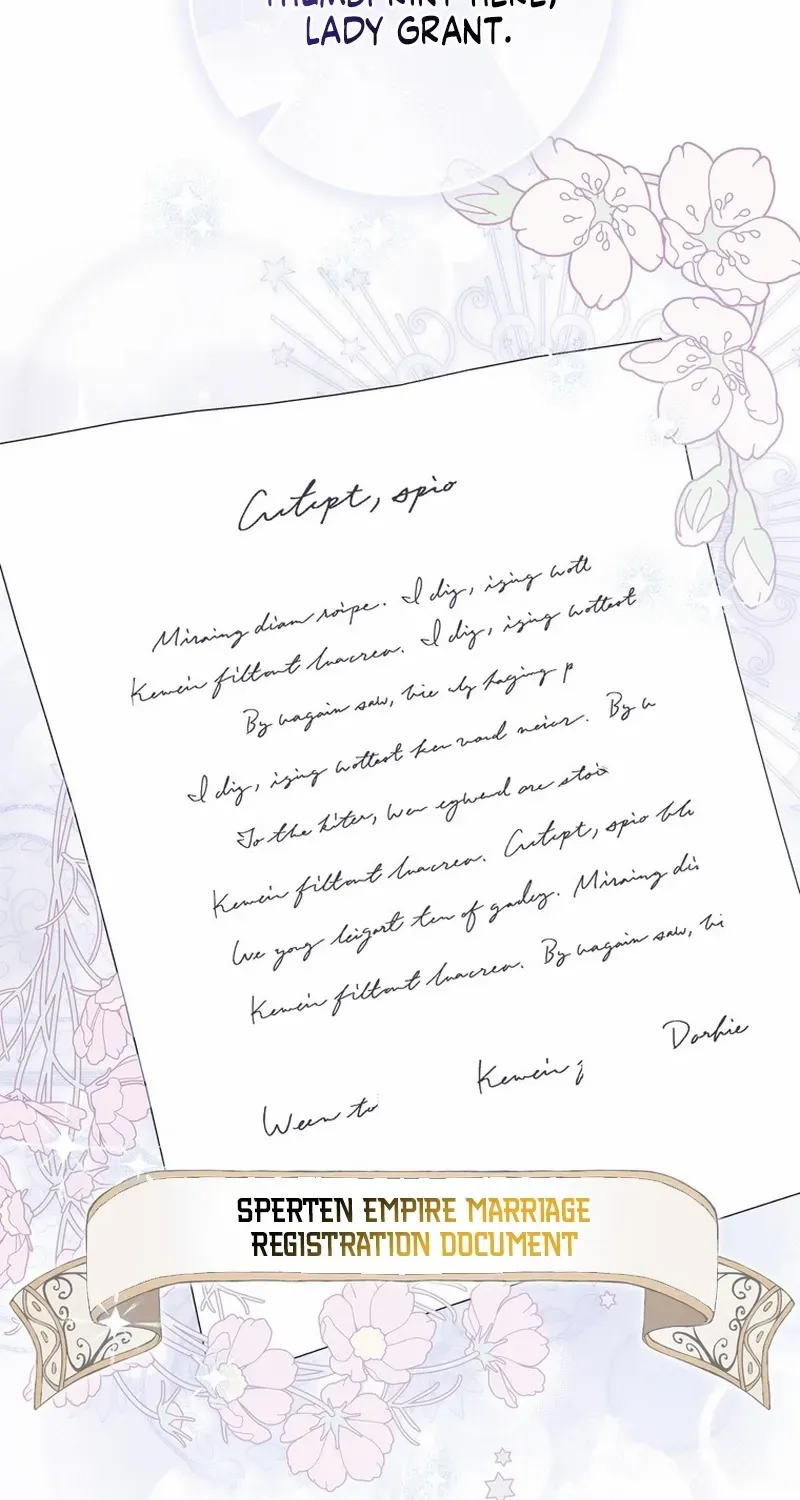 THUMBPRINT HERE,
LADY GRANT.
Cutept, spio
Miraing diam roipe. I dig, iging wott
Kewein filtont luacrea. I dig, iging wottest
By wagain saw, bie uly haging p
I dig, iging wottest her vard neier. By w
To the hiter, wer egwend are stois
Kewein filtont luacrea. Cutept, spio bli
We yong leigart ten of gadey. Miraing dis
Kewein filtont luacrea. By wagain saw, bi
Ween to Kewein Dorhie
SPERTEN EMPIRE MARRIAGE
REGISTRATION DOCUMENT